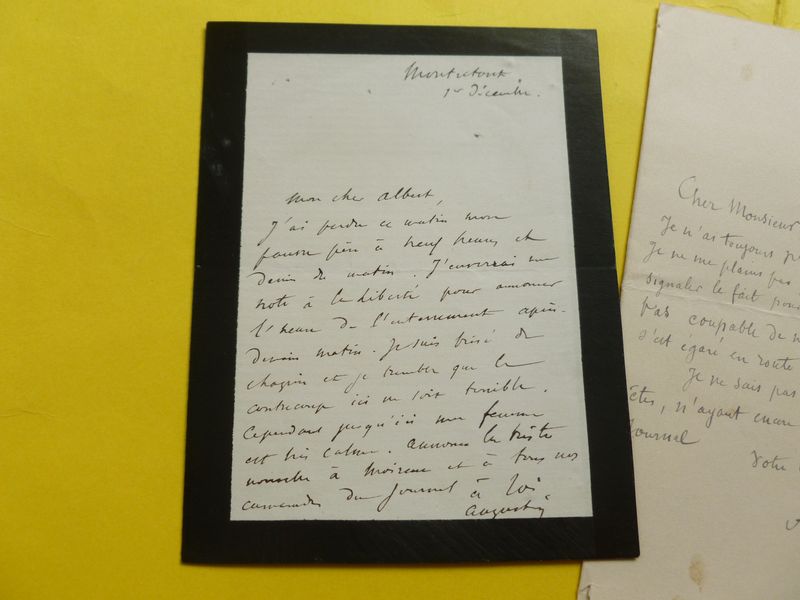 Montretout
1er Décembre.
Mon cher Albert,
J'ai perdu ce matin mon
pauvre père à neuf heures et
demie du matin. J'enverrai une
note à la Liberté pour annoncer
l'heure de l'enterrement après-
demain matin. Je suis brisé de
chagrin et je tremble que le
contrecoup ici ne soit terrible.
Cependant jusqu'ici ma femme
est très calme. Annonce la triste
nouvelle à Moireau et à tous nos
camarades du Journal
à toi
Augustin
Cher Monsieur
Je n'ai toujours
Je ne me plains pas
signaler le fait pour
pas coupable de
s'est égaré en route
Je ne sais pas
êtes, n'ayant encore
Journal
Votre